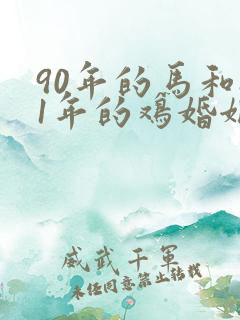 90年的馬和
1年的鷄婚
威武千軍
未经同意禁止转载